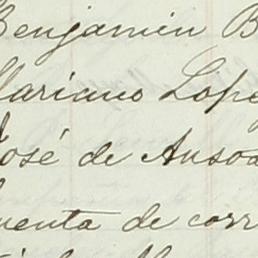 Benjamin B
Mariano Lope
José de Ansoa
uenta de corr